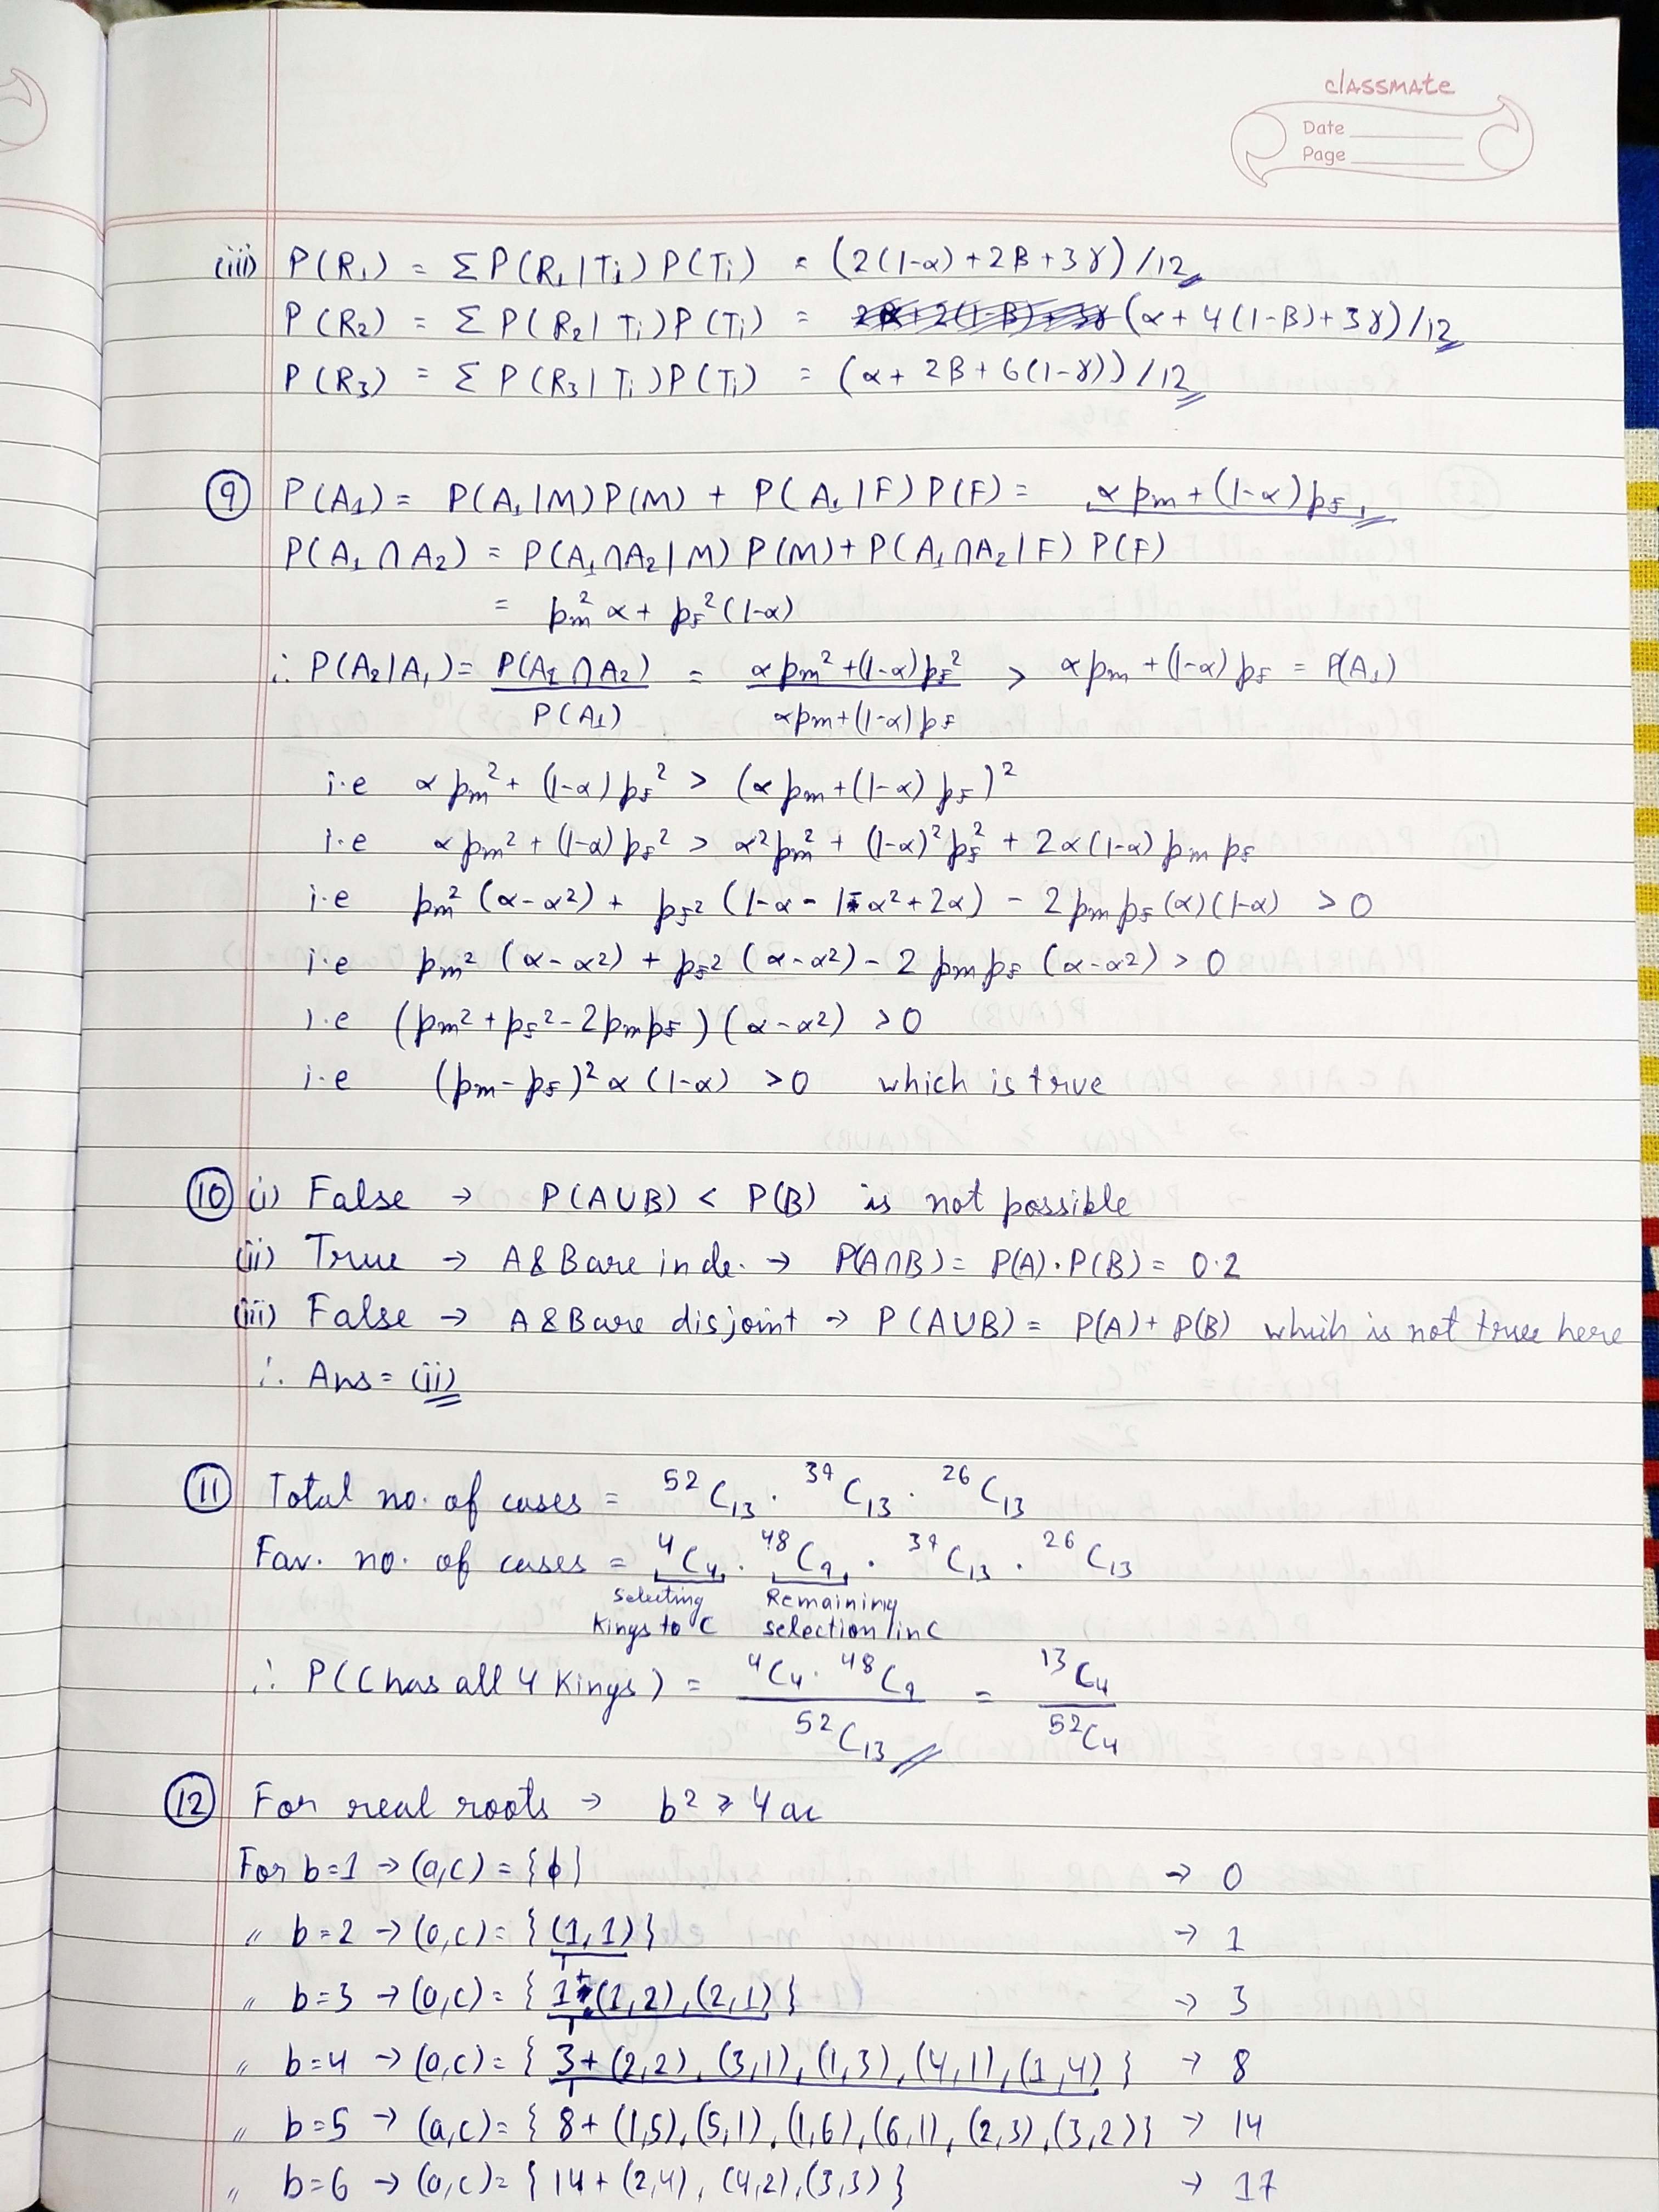 classmate
Date
Page
(iii) P(R₁) = Σ P(R₁|Tᵢ) P(Tᵢ) = (2(1-α) + 2β + 3γ) / 12
P(R₂) = Σ P(R₂|Tᵢ) P(Tᵢ) = (α + 4(1-β) + 3γ) / 12
P(R₃) = Σ P(R₃|Tᵢ) P(Tᵢ) = (α + 2β + 6(1-γ)) / 12
9 P(A₁) = P(A₁|M) P(M) + P(A₁|F) P(F) = α pm + (1-α) pf
P(A₁ ∩ A₂) = P(A₁ ∩ A₂|M) P(M) + P(A₁ ∩ A₂|F) P(F)
= pm² α + pf² (1-α)
∴ P(A₂|A₁) = P(A₁ ∩ A₂) / P(A₁) = (α pm² + (1-α) pf²) / (α pm + (1-α) pf) > α pm + (1-α) pf = P(A₁)
i.e α pm² + (1-α) pf² > (α pm + (1-α) pf)²
i.e α pm² + (1-α) pf² > α² pm² + (1-α)² pf² + 2α(1-α) pm pf
i.e pm² (α - α²) + pf² (1-α - 1 - α² + 2α) - 2 pm pf (α)(1-α) > 0
i.e pm² (α - α²) + pf² (α - α²) - 2 pm pf (α - α²) > 0
i.e (pm² + pf² - 2 pm pf) (α - α²) > 0
i.e (pm - pf)² α (1-α) > 0 which is true
10 (i) False → P(A∪B) < P(B) is not possible
(ii) True → A & B are inde. → P(A∩B) = P(A)·P(B) = 0.2
(iii) False → A & B are disjoint → P(A∪B) = P(A) + P(B) which is not true here
∴ Ans = (ii)
11 Total no. of cases = ⁵²C₁₃ · ³⁹C₁₃ · ²⁶C₁₃
Fav. no. of cases = ⁴C₄ · ⁴⁸C₉ · ³⁹C₁₃ · ²⁶C₁₃
Selecting Remaining
Kings to C selection in C
∴ P(C has all 4 Kings) = ⁴C₄ · ⁴⁸C₉ / ⁵²C₁₃ = ¹³C₄ / ⁵²C₄
12 For real roots → b² ≥ 4ac
For b=1 → (a,c) = {ϕ} → 0
〃 b=2 → (a,c) = {(1,1)} → 1
〃 b=3 → (a,c) = {1+(1,2),(2,1)} → 3
〃 b=4 → (a,c) = {3+(2,2),(3,1),(1,3),(4,1),(1,4)} → 8
〃 b=5 → (a,c) = {8+(1,5),(5,1),(1,6),(6,1),(2,3),(3,2)} → 14
〃 b=6 → (a,c) = {14+(2,4),(4,2),(3,3)} → 17